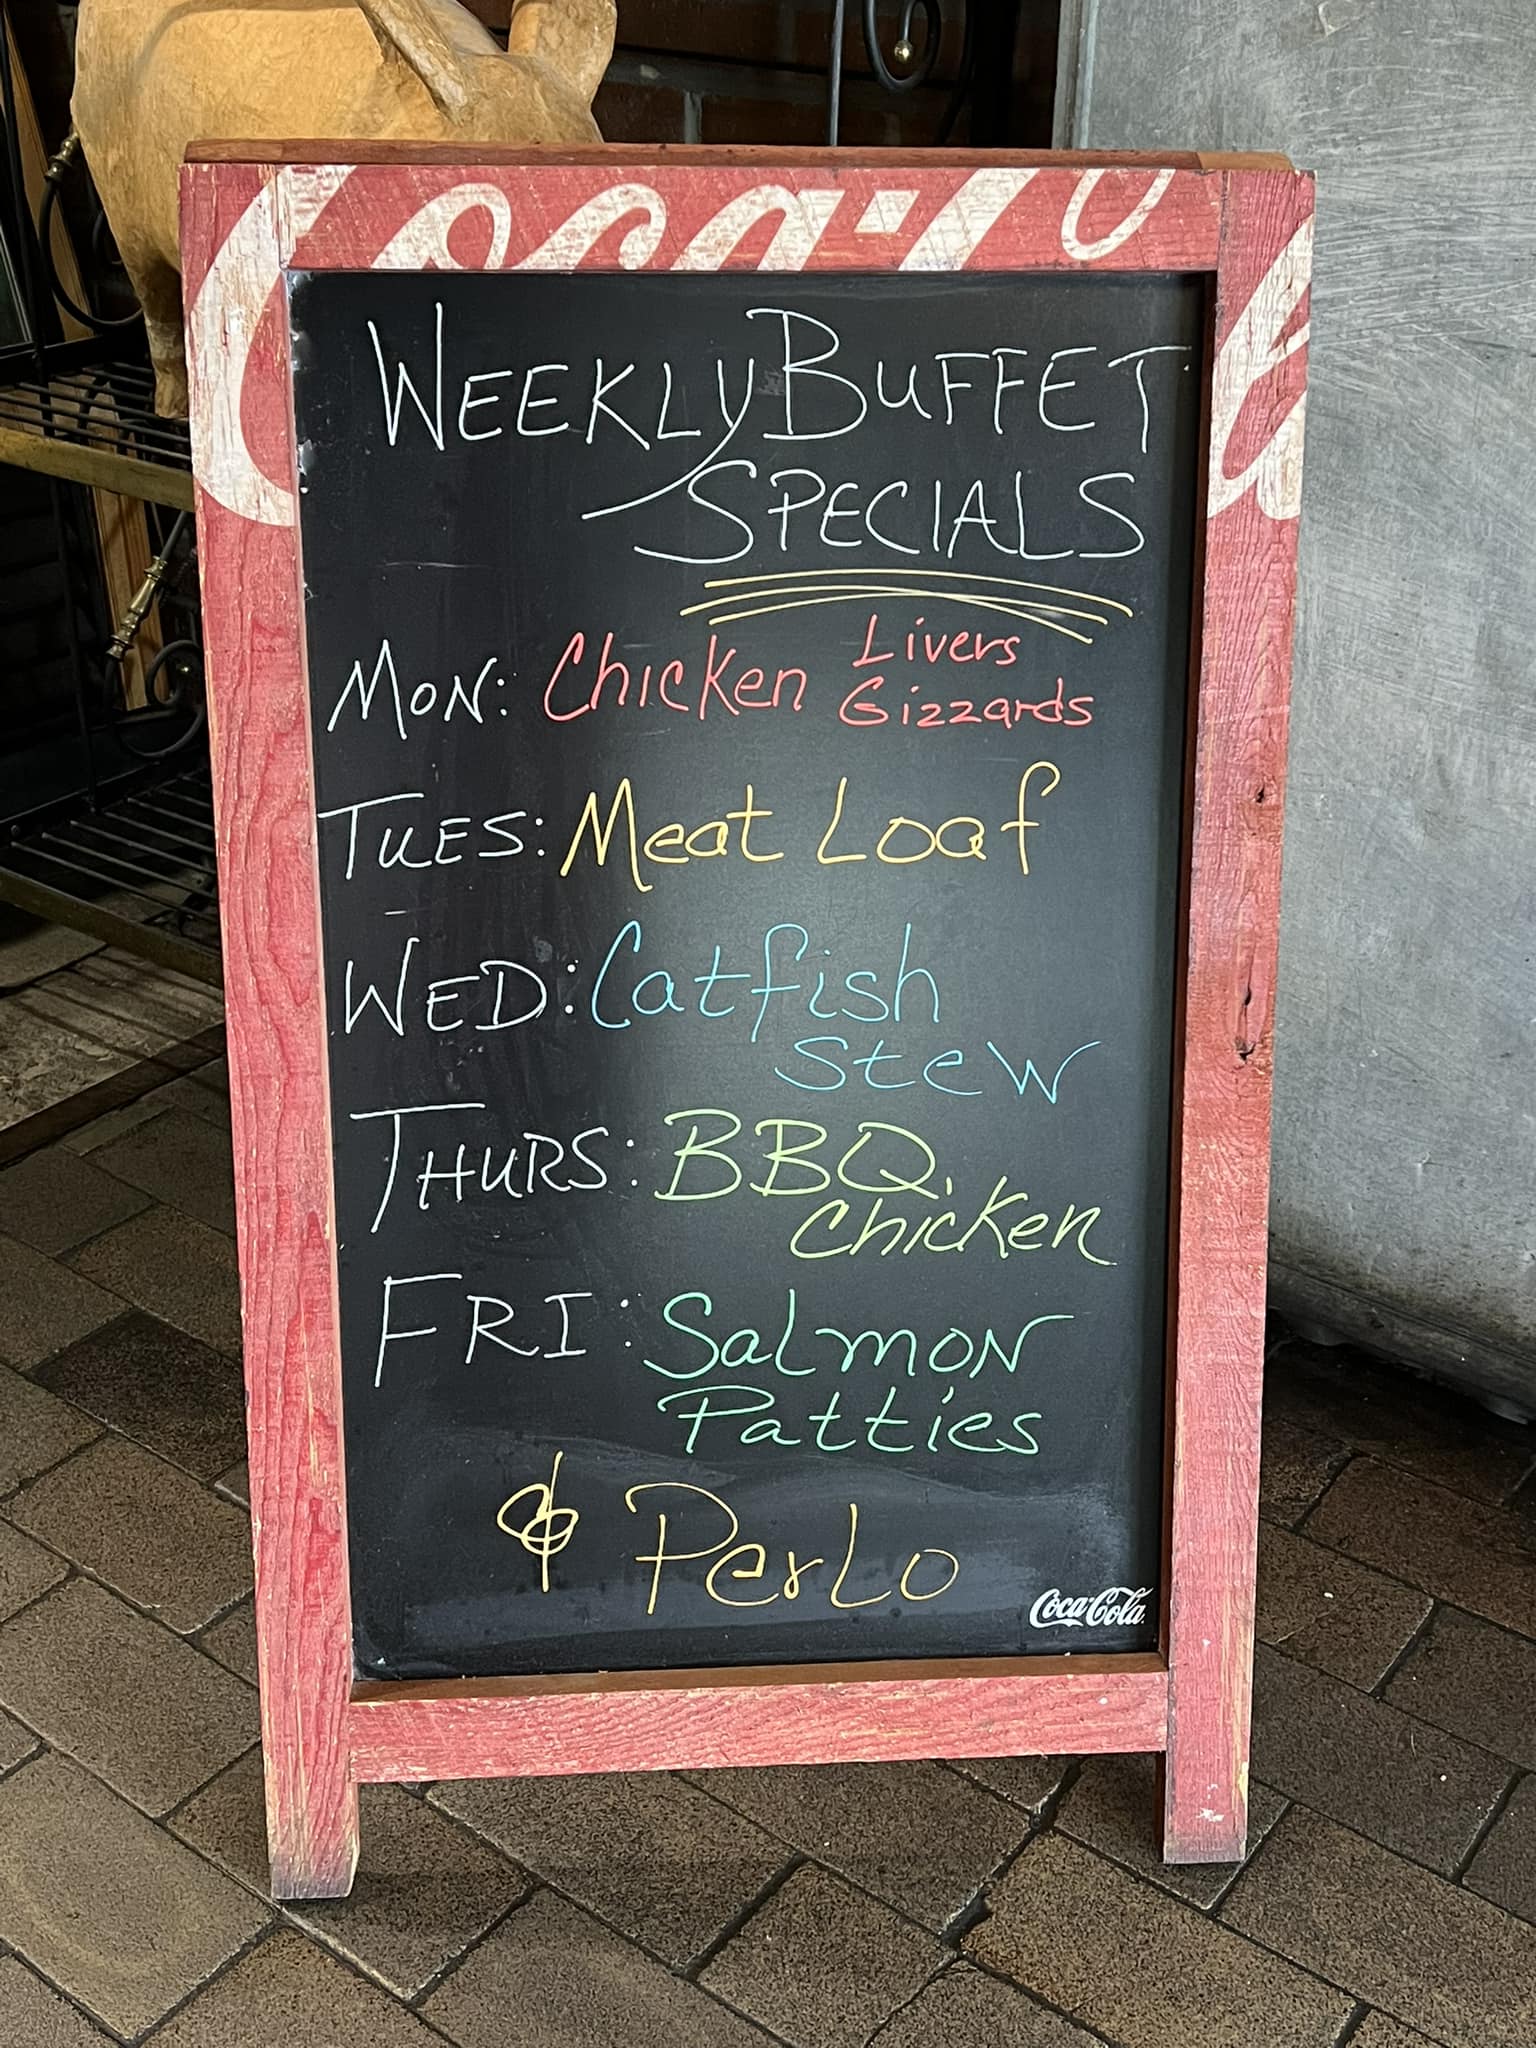 Coca-Cola
WEEKLY BUFFET
SPECIALS
MON: Chicken Livers
Gizzards
TUES: Meat Loaf
WED: Catfish
Stew
THURS: BBQ
Chicken
FRI: Salmon
Patties
& Perlo
Coca-Cola